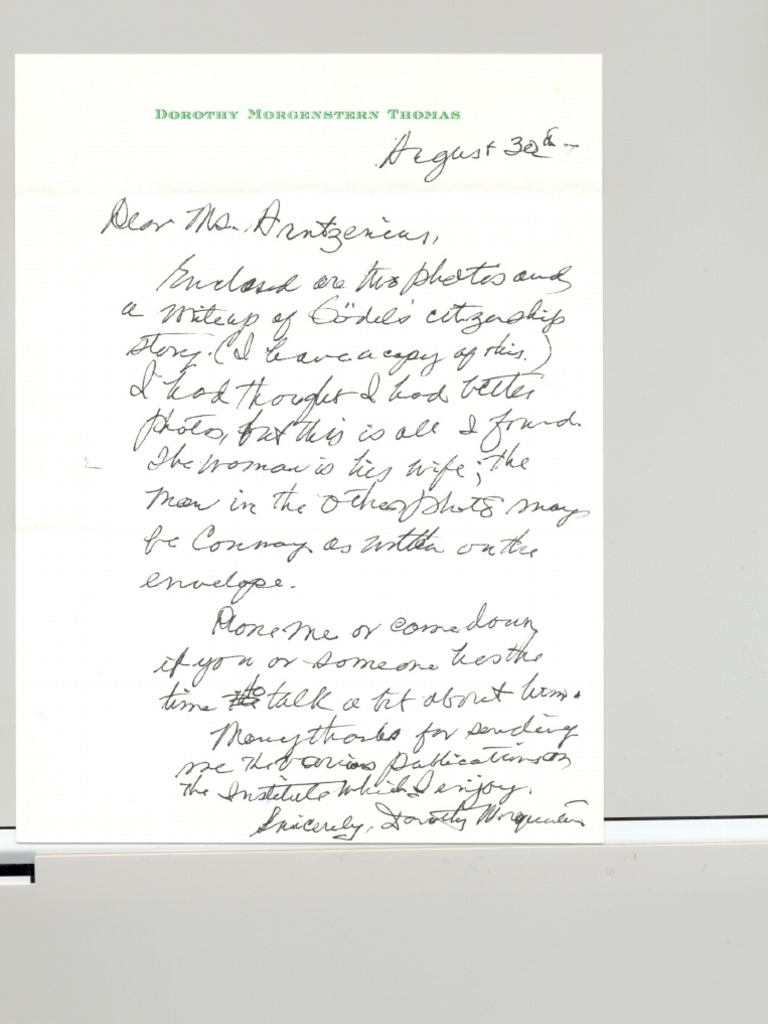 DOROTHY MORGENSTERN THOMAS
August 30th –
Dear Ms. Arntzenius,
Enclosed are two photos and
a writeup of Gödel's citizenship
story. (I have a copy of this.)
I had thought I had better
photos, but this is all I found.
The woman is his wife; the
man in the other photo may
be Conway as written on the
envelope.
Phone me or come down
if you or someone has the
time to talk a bit about him.
Many thanks for sending
me the various publications on
the Institute which I enjoy.
Sincerely, Dorothy Morgenstern